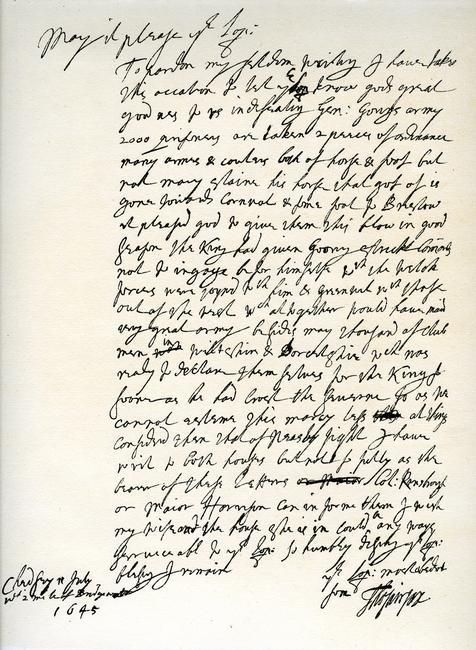 May it please yr Lop:
To pardon my seldom writing I have taken
this occation to let you know gods great
goodnes to us in defeating Gen: Gorings army
2000 prisoners are taken 2 peeces of ordinance
many armes & coulers both of horse & foot but
not many slaine his horse that got of is
gone towards Cornwal & some foot to Bristow
it pleasd god to give them this blow in good
season the King had given Goring strickt Comands
not to ingage before himselfe wth the Welch
forces were joynd wth him & Greenvil wth those
out of the west wch altogether would have mad
very great army besides many thousand of Club
men in Wiltshir & Dorcetshire wch was
ready to declare themselves for the King so
soone as he had the so as we
cannot esteeme this marcy less all things
considerd then that of Nasby fight I have
writ to both houses but not so fully as the
bearer of these Letters Col: Rainsbrough
or Maior Harrison can informe them I wish
my wife and the house she is in could any ways
serviceable to yr Lop: So humbly yr Lop:
blesing I remain
yr Lop: most obedient
sonn
Chedsey 11 July
wth 2 miles of Bridgwater
1645